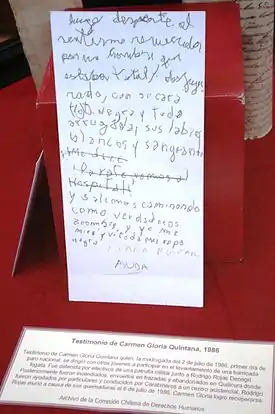 luego desperté al
sentirme remecida
por un hombre que
estaba
rado, con su cara
negra y toda
arrugada, sus labios
blancos y sangrantes
me dice
Párate vamos al
Hospital
y salimos caminando
como verdaderos
zombies, y yo me
miro y
negra
AYUDA
Testimonio de Carmen Gloria Quintana, 1986
Testimonio de Carmen Gloria Quintana quien, la madrugada del 2 de julio de 1986, primer día de
paro nacional, se dirigió con otros jóvenes a participar en el levantamiento de una barricada
fogata. Fue detenida por efectivos de una patrulla militar junto a Rodrigo Rojas Denegri.
Posteriormente fueron incendiados, envueltos en frazadas y abandonados en Quilicura donde
fueron ayudados por particulares y conducidos por Carabineros a un centro asistencial. Rodrigo
Rojas murió a causa de sus quemaduras el 6 de julio de 1986. Carmen Gloria logró recuperarse.
Archivo de la Comisión Chilena de Derechos Humanos.